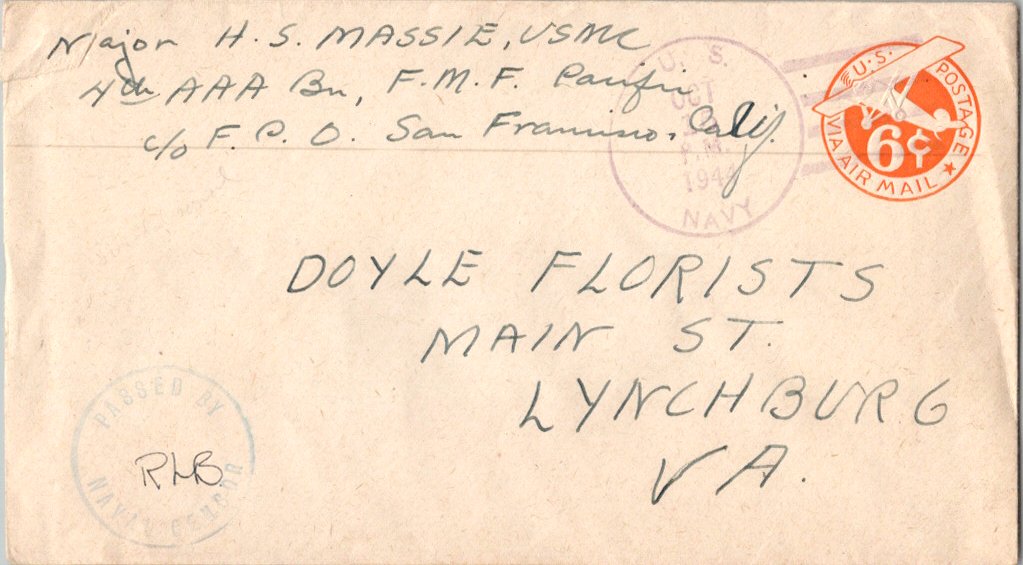 Major H. S. MASSIE, USMC
4th AAA Bn, F.M.F. Pacific
c/o F. P. O. San Francisco, Calif.
U. S.
OCT
P.M.
1944
NAVY
U.S. POSTAGE
6¢
VIA AIR MAIL
DOYLE FLORISTS
MAIN ST.
LYNCHBURG
VA.
PASSED BY
RLB
NAVAL CENSOR